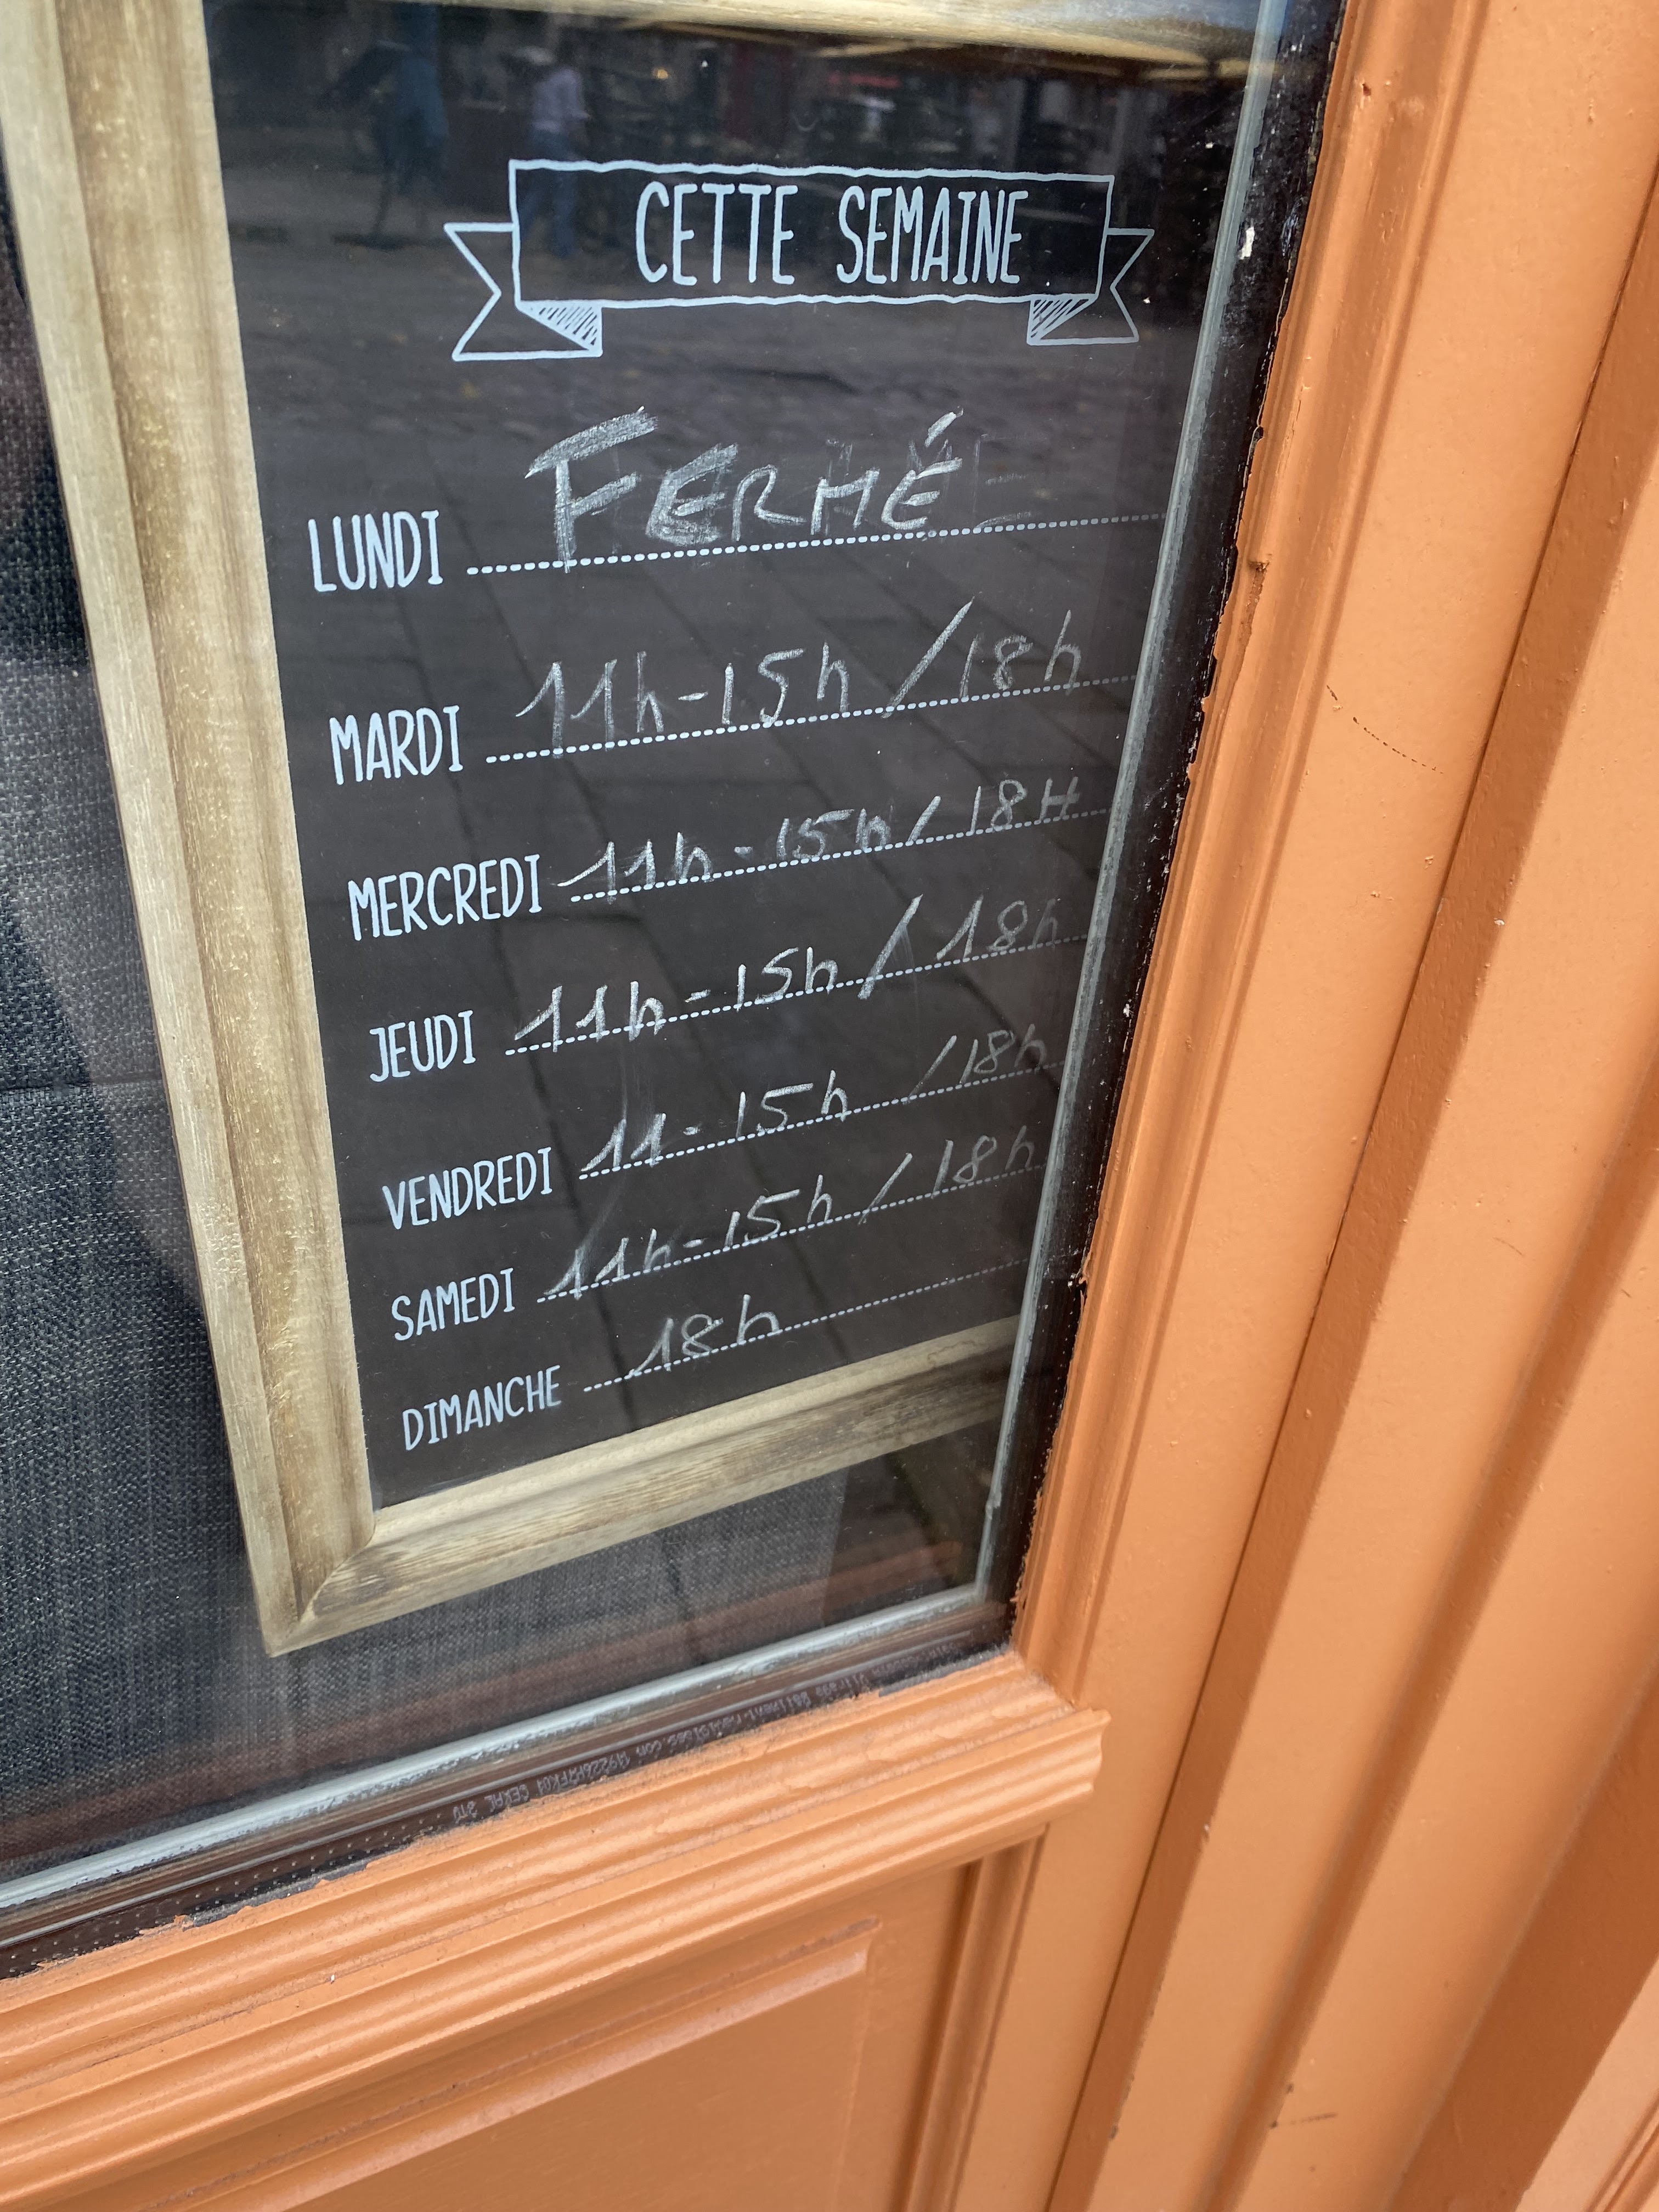 CETTE SEMAINE
LUNDI FERMÉ
MARDI 11h-15h / 18h
MERCREDI 11h-15h / 18H
JEUDI 11h-15h / 18h
VENDREDI 11-15h / 18h
SAMEDI 11h-15h / 18h
DIMANCHE 18h